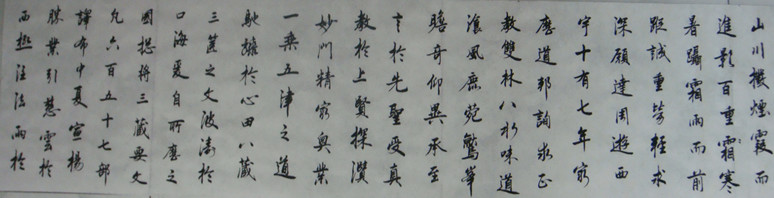 山川撥煙霞而
進影百重霜寒
暑躡霜雨而前
蹤誠重勞輕求
深願達周遊西
宇十有七年窮
歷道邦詢求正
教雙林八水味道
湌風鹿菀鷲峯
瞻奇仰異承至
言於先聖受真
教於上賢探賾
妙門精窮奧業
一乘五律之道
馳驟於心田八藏
三篋之文波濤於
口海爰自所歷之
國揔將三藏要文
凡六百五十七部
譯布中夏宣揚
勝業引慈雲於
西極注法雨於